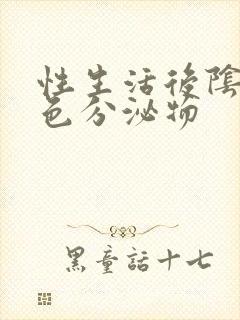 性生活後陰
色分泌物
黑童話十七